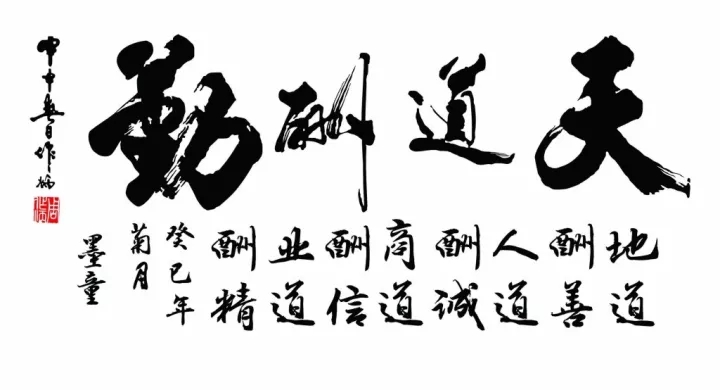 天道酬勤
甲申春日作
地道
酬善
人道
酬诚
商道
酬信
业道
酬精
癸巳年
菊月
墨童